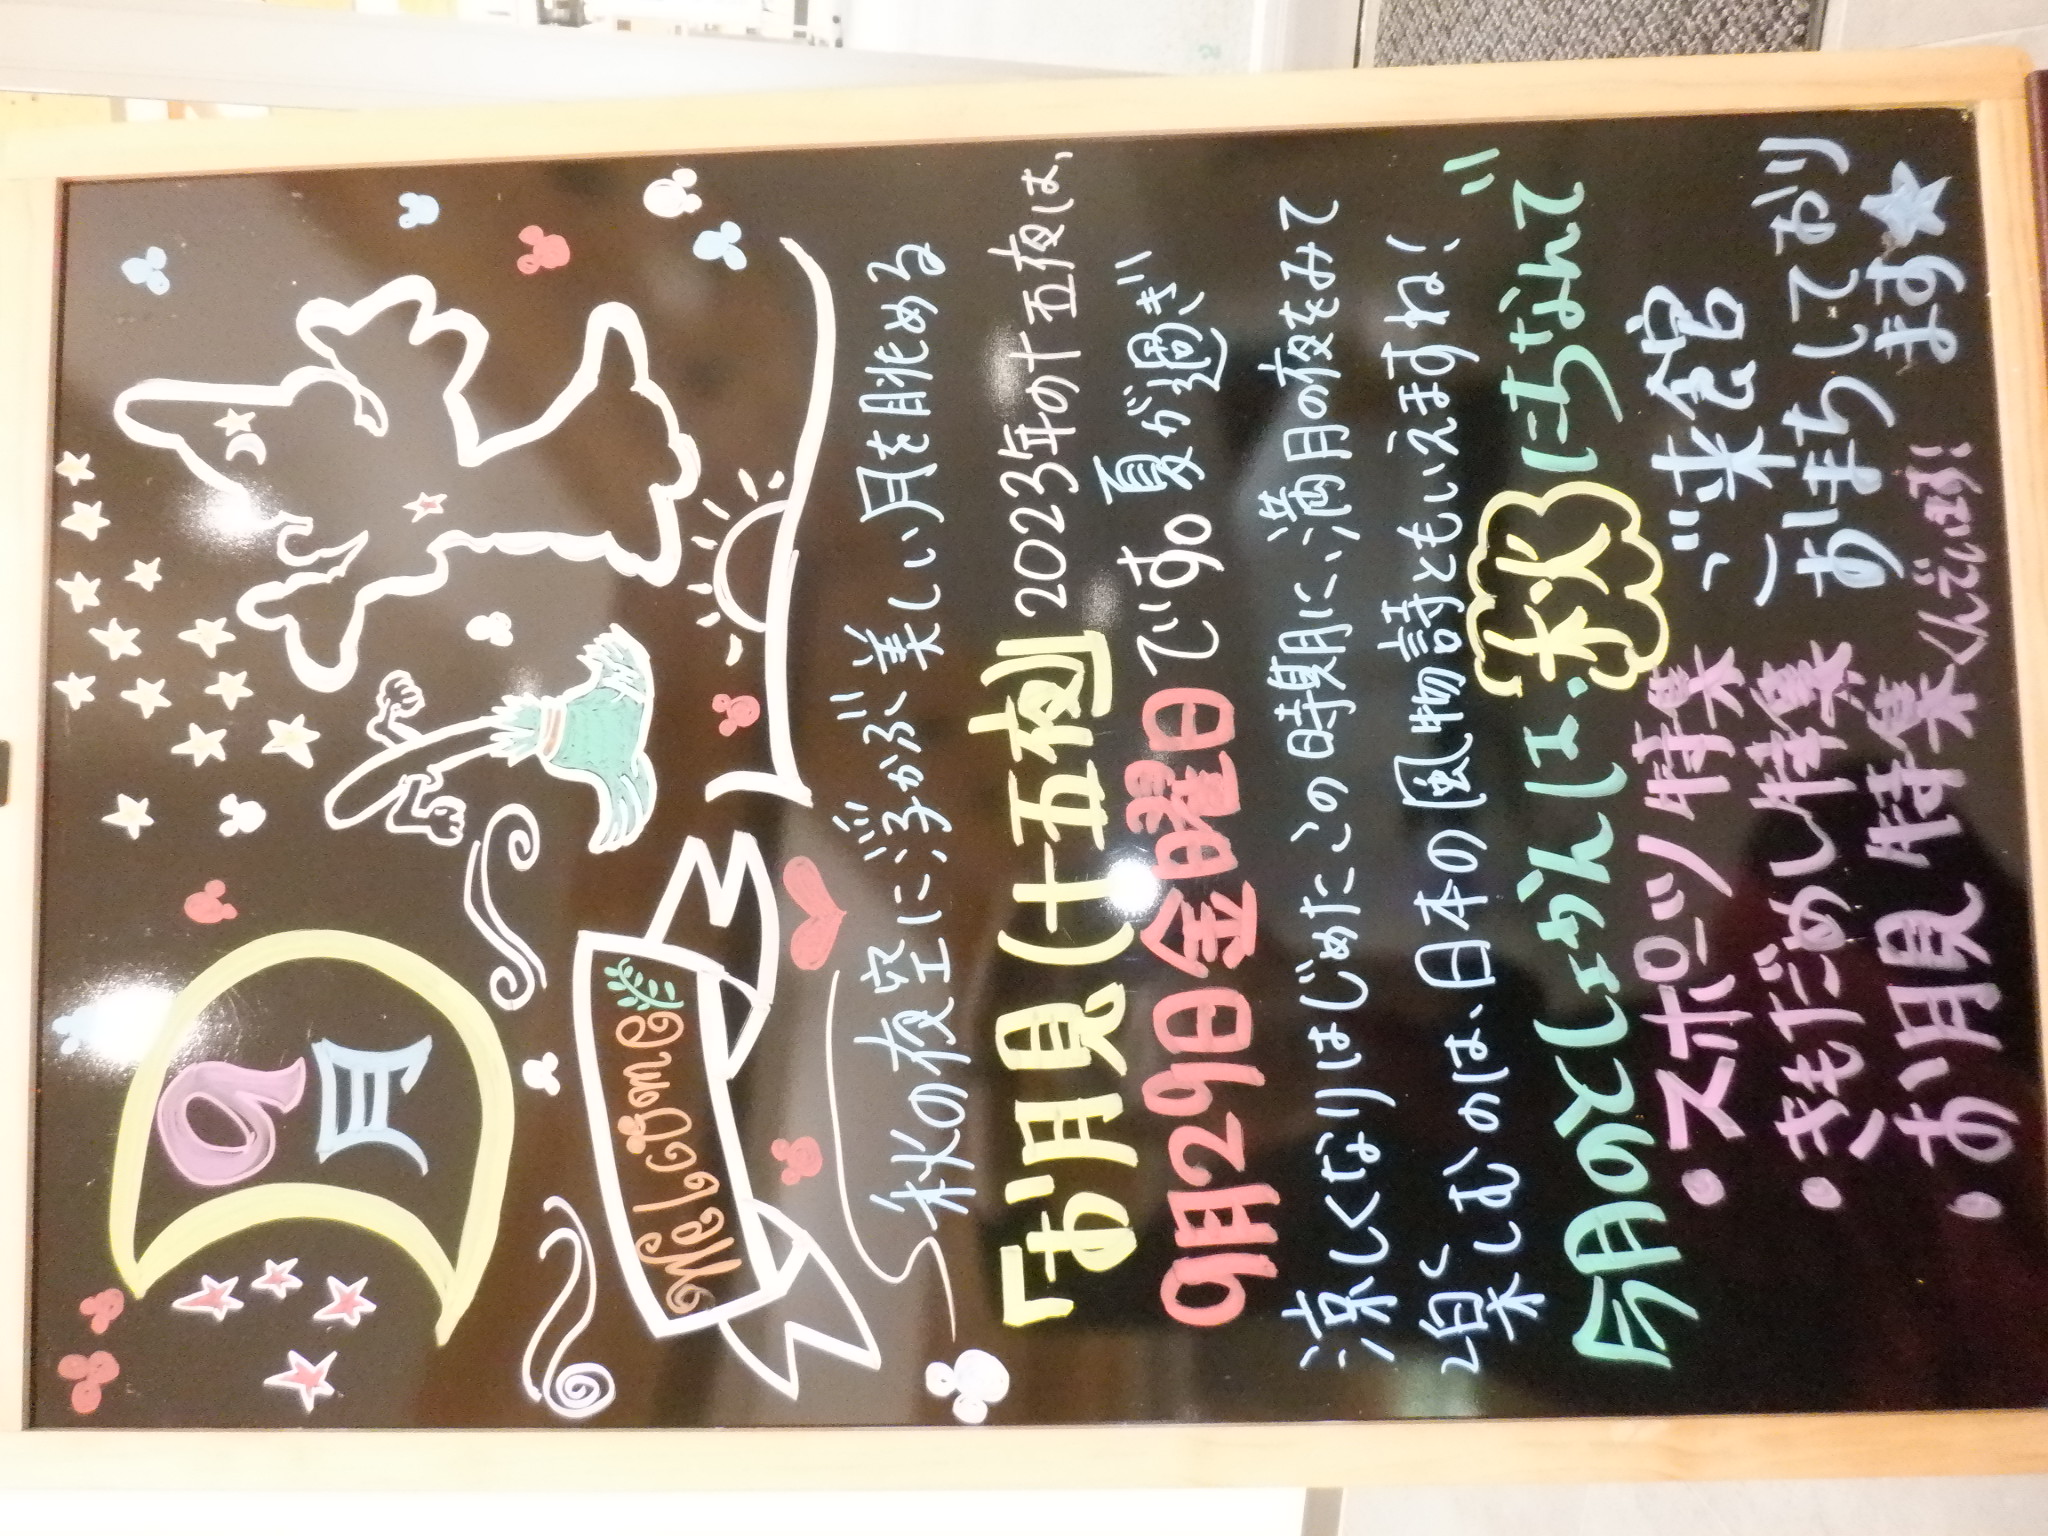 9月
Welcome
秋の夜空に浮かぶ美しい月を眺める
『お月見(十五夜)』2023年の十五夜は、
9月29日金曜日です。夏が過ぎ
涼しくなりはじめたこの時期に、満月の夜をみて
楽しむのは、日本の風物詩ともいえますね!
今月のとしょかんは、秋にちなんで
・スポーツ特集
・きもだめし特集
・お月見特集
ご来館
おまちしており
ます★